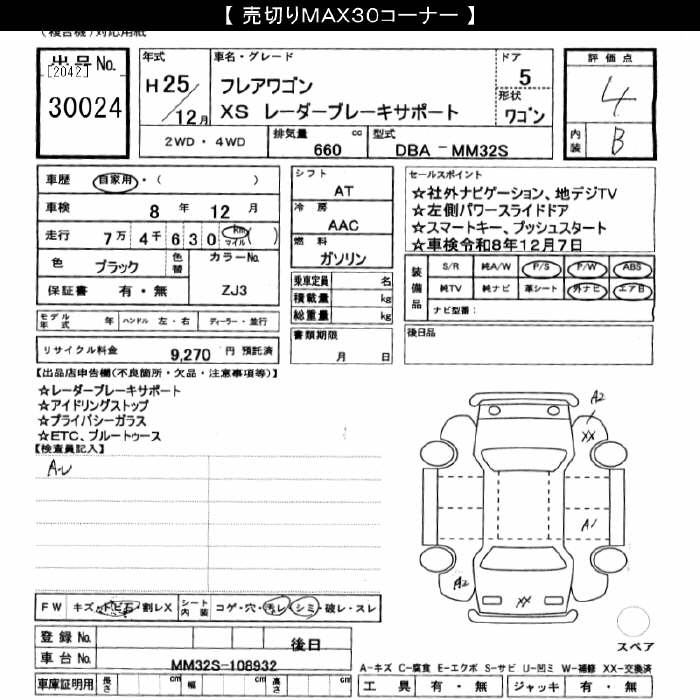 【 売切りMAX30コーナー 】
(複合機)対応用紙
出品No. 年式 車名・グレード ドア 評価点
[2042] H25/12月 フレアワゴン 5 4
30024 XS レーダーブレーキサポート 形状 ワゴン 内装 B
2WD・4WD 排気量 660 cc 型式 DBA-MM32S
車歴 自家用・( )
車検 8 年 12 月
走行 7万 4千 6 3 0 km マイル ( )
色 ブラック 色替 カラーNo.
保証書 有・無 ZJ3
モデル年式 年 ハンドル 左・右 ディーラー・並行
リサイクル料金 9,270 円 預託済
シフト
AT
冷房
AAC
燃料
ガソリン
乗車定員 名
積載量 kg
総重量 kg
書類期限
月 日
セールスポイント
☆社外ナビゲーション、地デジTV
☆左側パワースライドドア
☆スマートキー、プッシュスタート
☆車検令和8年12月7日
装備品 S/R 純A/W P/S P/W ABS
純TV 純ナビ 革シート 外ナビ エアB
ナビ型番:
後日品
【出品店申告欄(不良箇所・欠品・注意事項等)】
☆レーダーブレーキサポート
☆アイドリングストップ
☆プライバシーガラス
☆ETC、ブルートゥース
【検査員記入】
A-U
A2
XX
A1
A2
XX
スペア
FW キズ・トビ石・割レX シート内装 コゲ・穴・汚レ・シミ・破レ・スレ
登録No. 後日
車台No. MM32S-108932
A-キズ C-腐食 E-エクボ S-サビ U-凹ミ W-補修 XX-交換済
車庫証明用 長さ cm 幅 cm 高さ cm 工具 有・無 ジャッキ 有・無